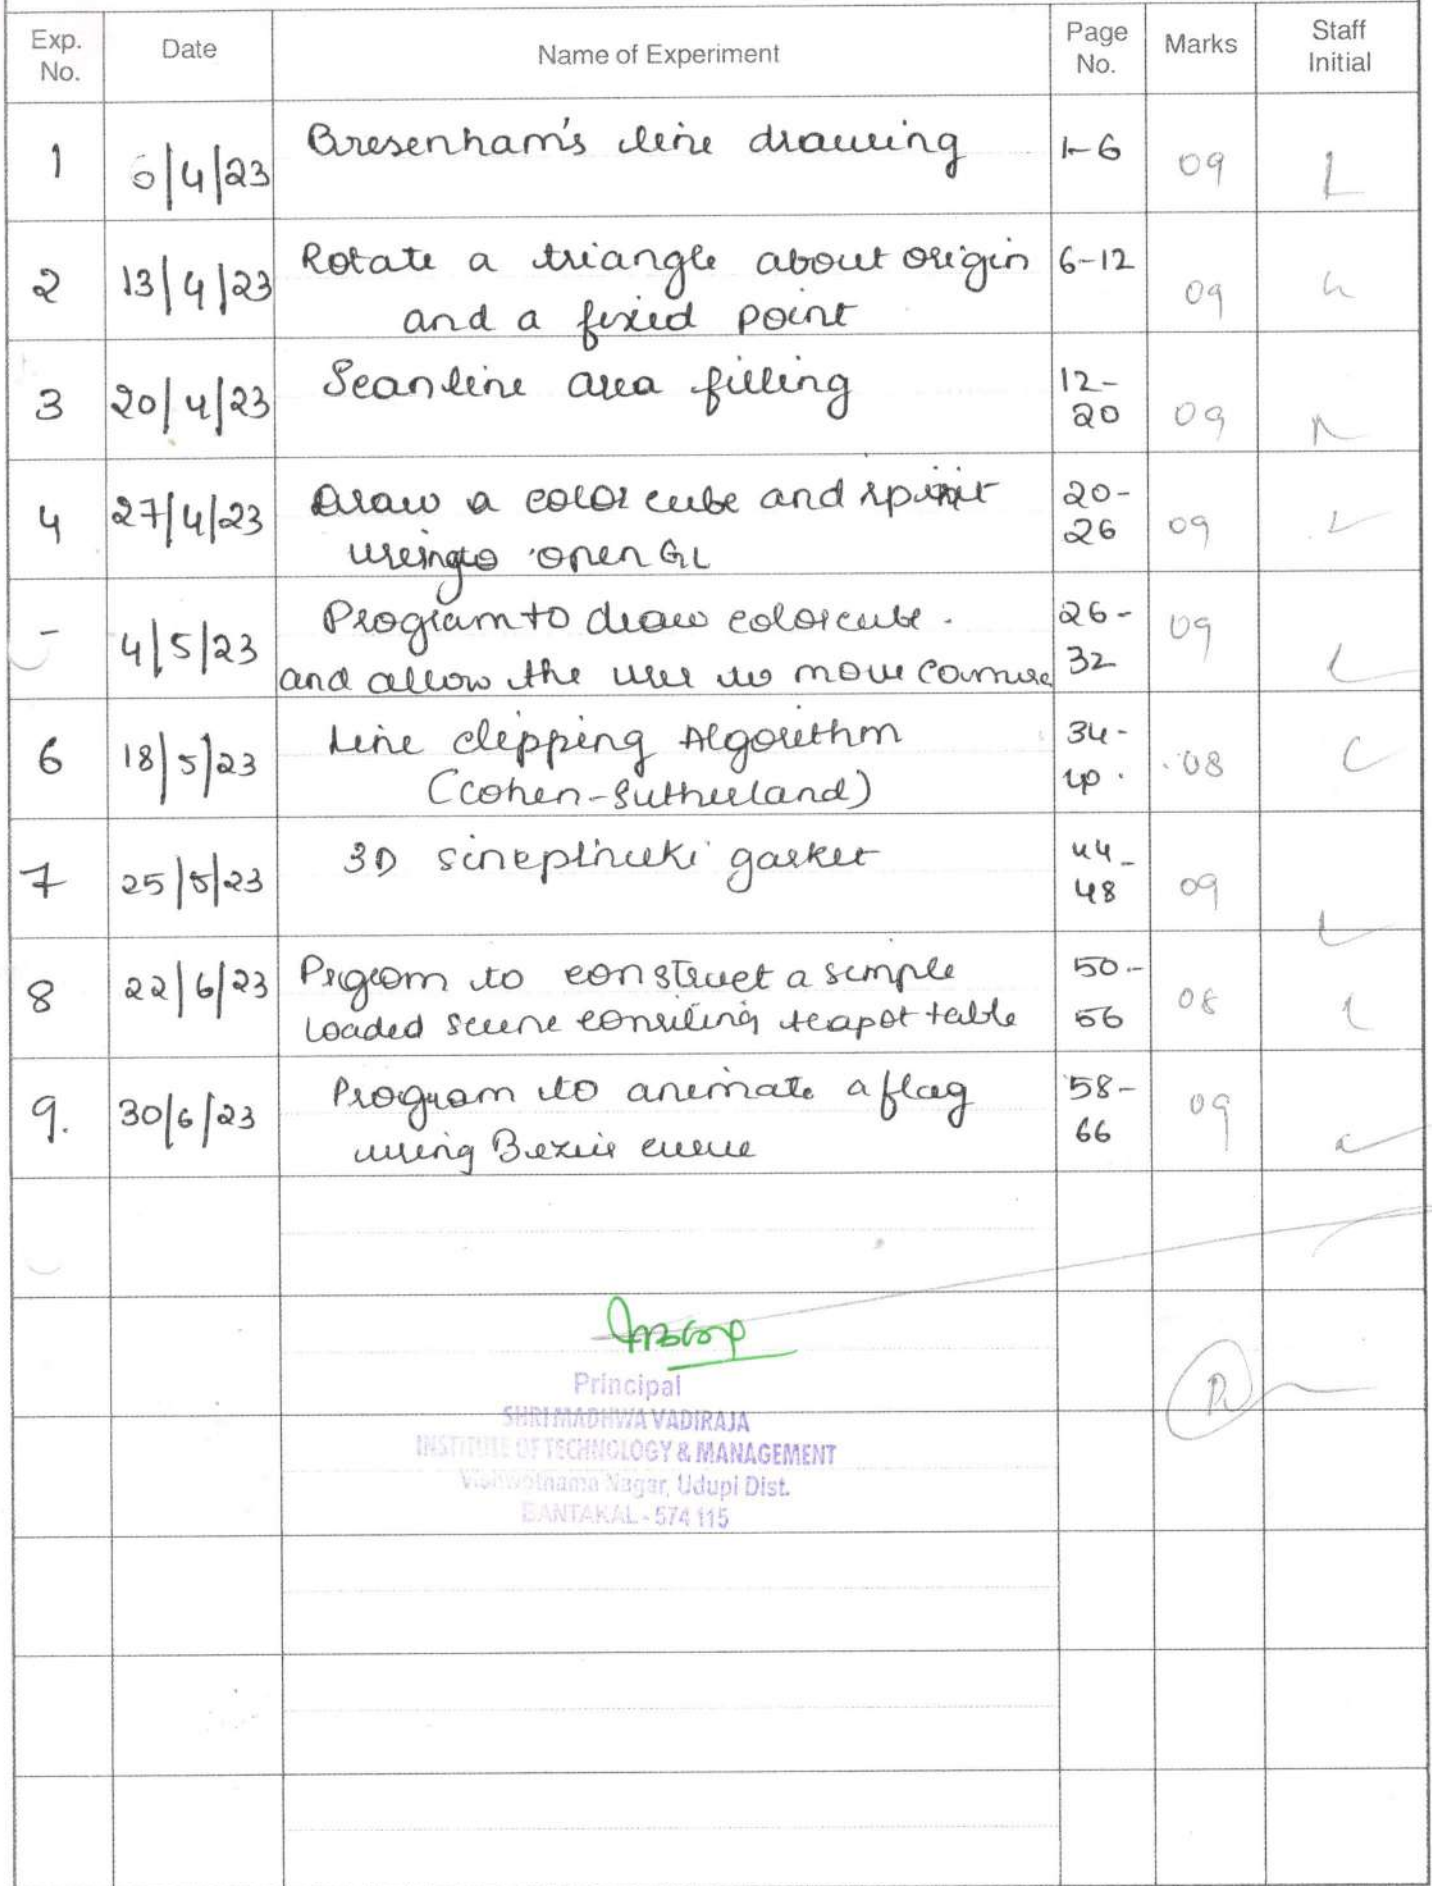 Exp. No. Date Name of Experiment Page No. Marks Staff Initial
1 6/4/23 Bresenham's line drawing 1-6 09
2 13/4/23 Rotate a triangle about origin 6-12 09
and a fixed point
3 20/4/23 Scanline area filling 12-20 09
4 27/4/23 Draw a color cube and spin it 20-26 09
using open GL
4/5/23 Program to draw colorcube. 26-32 09
and allow the user to move camera
6 18/5/23 Line clipping Algorithm 34-40. 08
(Cohen-Sutherland)
7 25/5/23 3D gasket 44-48 09
8 22/6/23 to construct a simple 50-56 08
Loaded scene teapot table
9. 30/6/23 Program to animate a flag 58-66 09
using Bezie curve
Principal
SHRI MADHWA VADIRAJA
INSTITUTE OF TECHNOLOGY & MANAGEMENT
Nagar, Udupi Dist.
BANTAKAL - 574 115